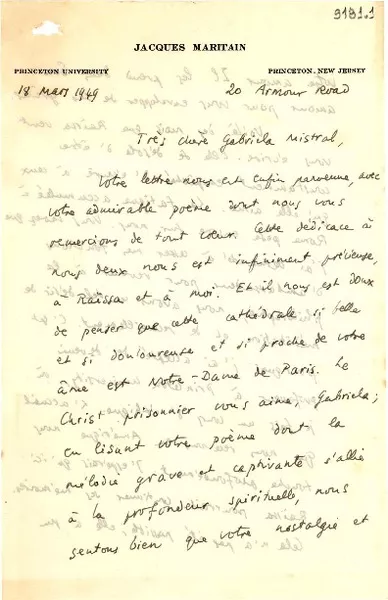 9181.1
JACQUES MARITAIN
PRINCETON UNIVERSITY PRINCETON, NEW JERSEY
18 Mars 1949 20 Armour Road
Très chère Gabriela Mistral,
Votre lettre nous est enfin parvenue, avec
votre admirable poème dont nous vous
remercions de tout cœur. Cette dédicace à
nous deux nous est infiniment précieuse,
à Raïssa et à moi. Et il nous est doux
de penser que cette cathédrale si belle
et si douloureuse et si proche de votre
âme est Notre-Dame de Paris. Le
Christ prisonnier vous aime, Gabriela;
en lisant votre poème dont la
mélodie grave et captivante s'allie
à la profondeur spirituelle, nous
sentons bien que votre nostalgie et